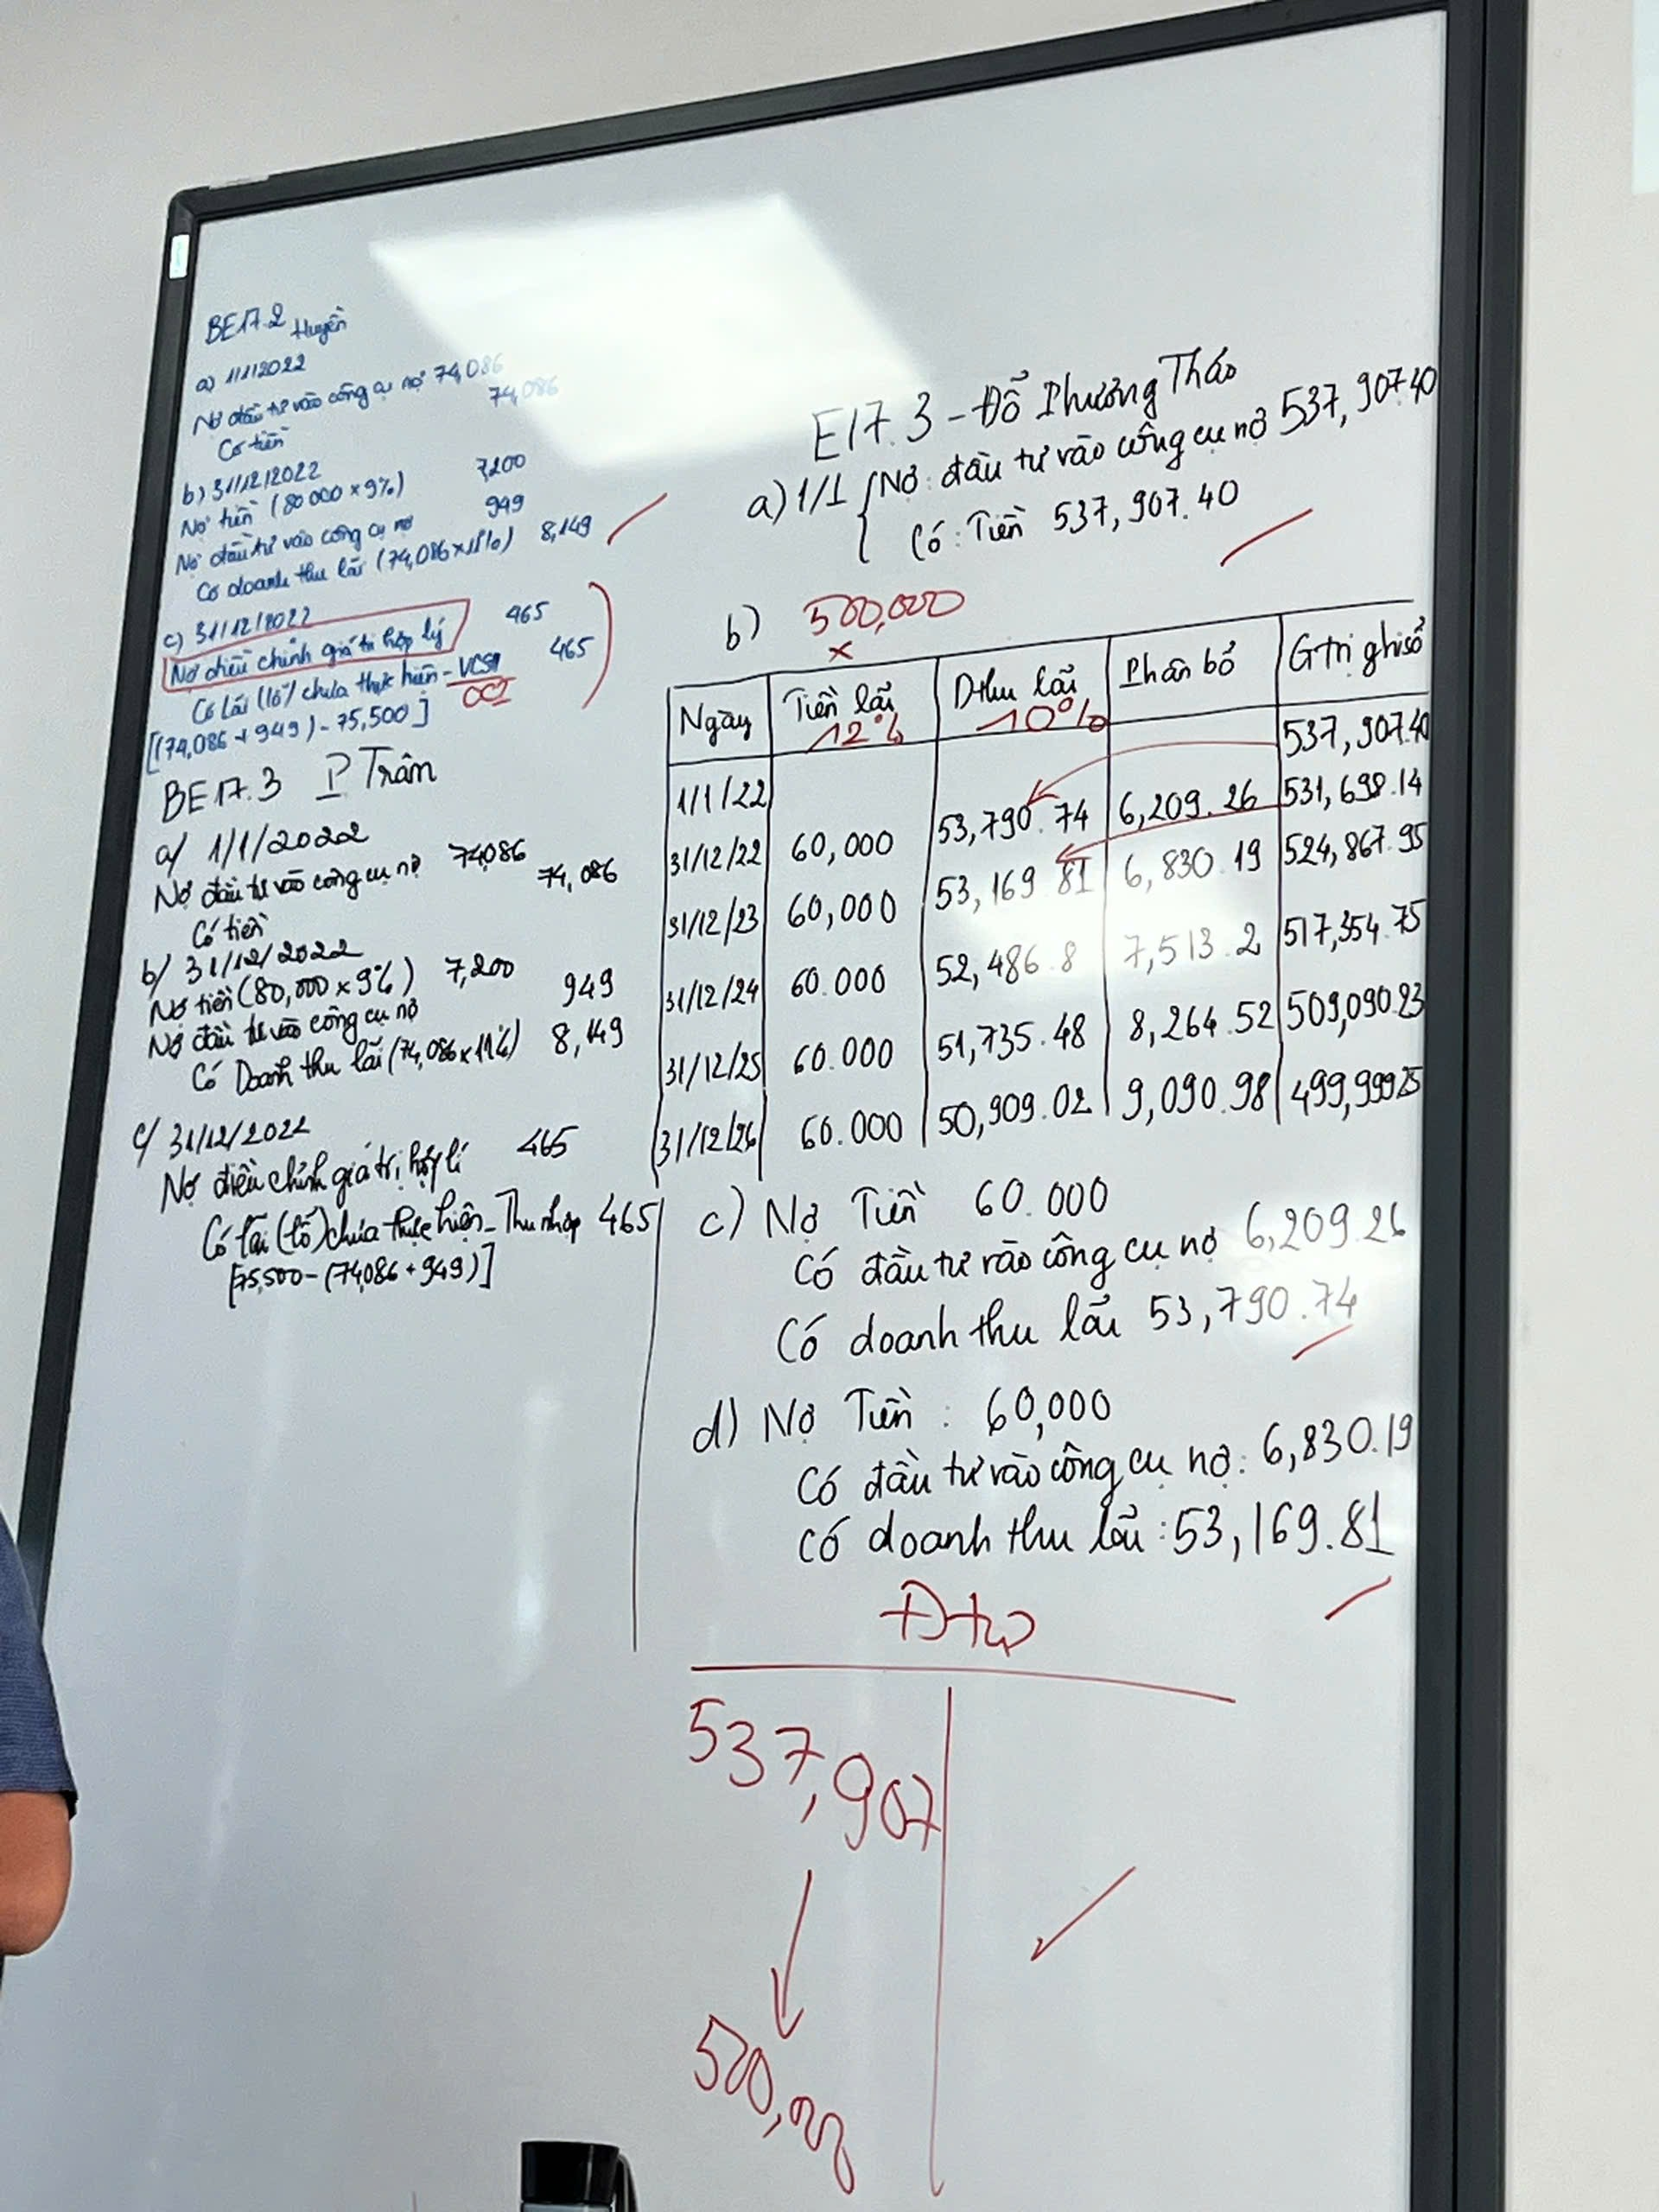 BE17.2 Huyền
a) 1/1/2022
Nợ đầu tư vào công cụ nợ 74,086
Có tiền 74,086
b) 31/12/2022
Nợ tiền (80 000 x 9%) 7,200
Nợ đầu tư vào công cụ nợ 949
Có doanh thu lãi (74,086 x 11%) 8,149
c) 31/12/2022
Nợ điều chỉnh giá trị hợp lý 465
Có Lãi (lỗ) chưa thực hiện - VCSH 465
OCI
[(74,086 + 949) - 75,500]
BE17.3 P Trân
a/ 1/1/2022
Nợ đầu tư vào công cụ nợ 74,086
Có tiền 74,086
b/ 31/12/2022
Nợ tiền (80,000 x 9%) 7,200
Nợ đầu tư vào công cụ nợ 949
Có Doanh thu lãi (74,086 x 11%) 8,149
c/ 31/12/2022
Nợ điều chỉnh giá trị hợp lí 465
Có lãi (lỗ) chưa thực hiện - Thu nhập 465
[75,500 - (74,086 + 949)]
E17.3 - Đỗ Phương Thảo
a) 1/1 Nợ: đầu tư vào công cụ nợ 537,907.40
Có: Tiền 537,907.40
b) 500,000
x
Ngày Tiền lãi Dthu lãi Phân bổ Gtrị ghi sổ
12% 10%
1/1/22 537,907.40
31/12/22 60,000 53,790.74 6,209.26 531,698.14
31/12/23 60,000 53,169.81 6,830.19 524,867.95
31/12/24 60.000 52,486.8 7,513.2 517,354.75
31/12/25 60.000 51,735.48 8,264.52 509,090.23
31/12/26 60.000 50,909.02 9,090.98 499,999.25
c) Nợ Tiền 60.000
Có đầu tư vào công cụ nợ 6,209.26
Có doanh thu lãi 53,790.74
d) Nợ Tiền: 60,000
Có đầu tư vào công cụ nợ: 6,830.19
Có doanh thu lãi: 53,169.81
Đtư
537,907
500,000